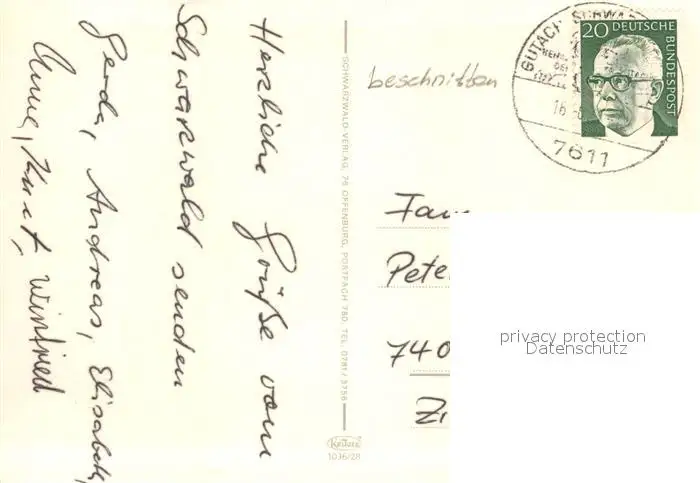 Herzliche Grüße vom
Schwarzwald senden
Gerda, Andreas, Elisabeth,
Anna, Kurt, Winfried
SCHWARZWALD-VERLAG, 76 OFFENBURG, POSTFACH 780, TEL. 0781/3756
1036/28
beschnitten
GUTACH SCHWA
16.
7611
20 DEUTSCHE
BUNDESPOST
Fam
Pete
740
Zi
privacy protection
Datenschutz